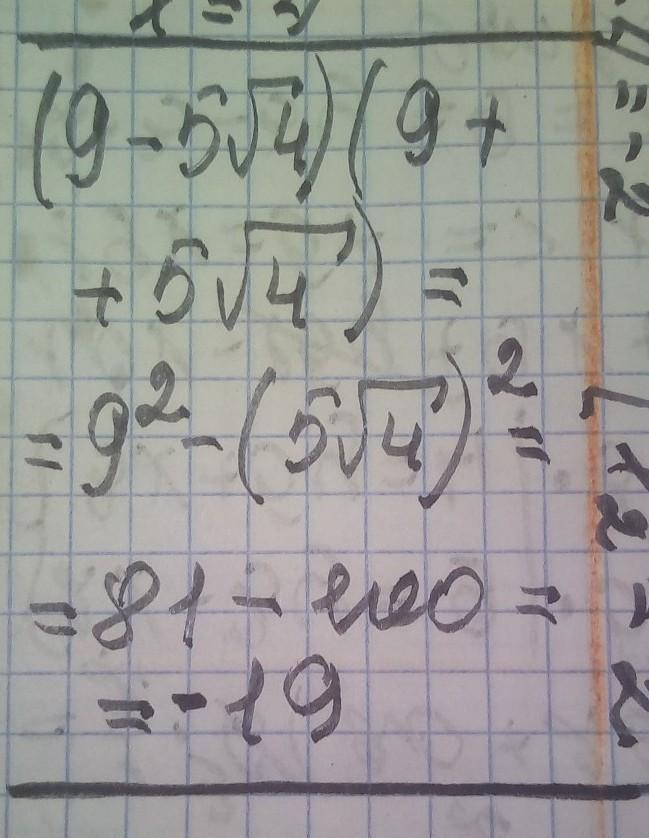 (9 - 5√4)(9 +
+ 5√4) =
= 9² - (5√4)² =
= 81 - 100 =
= - 19